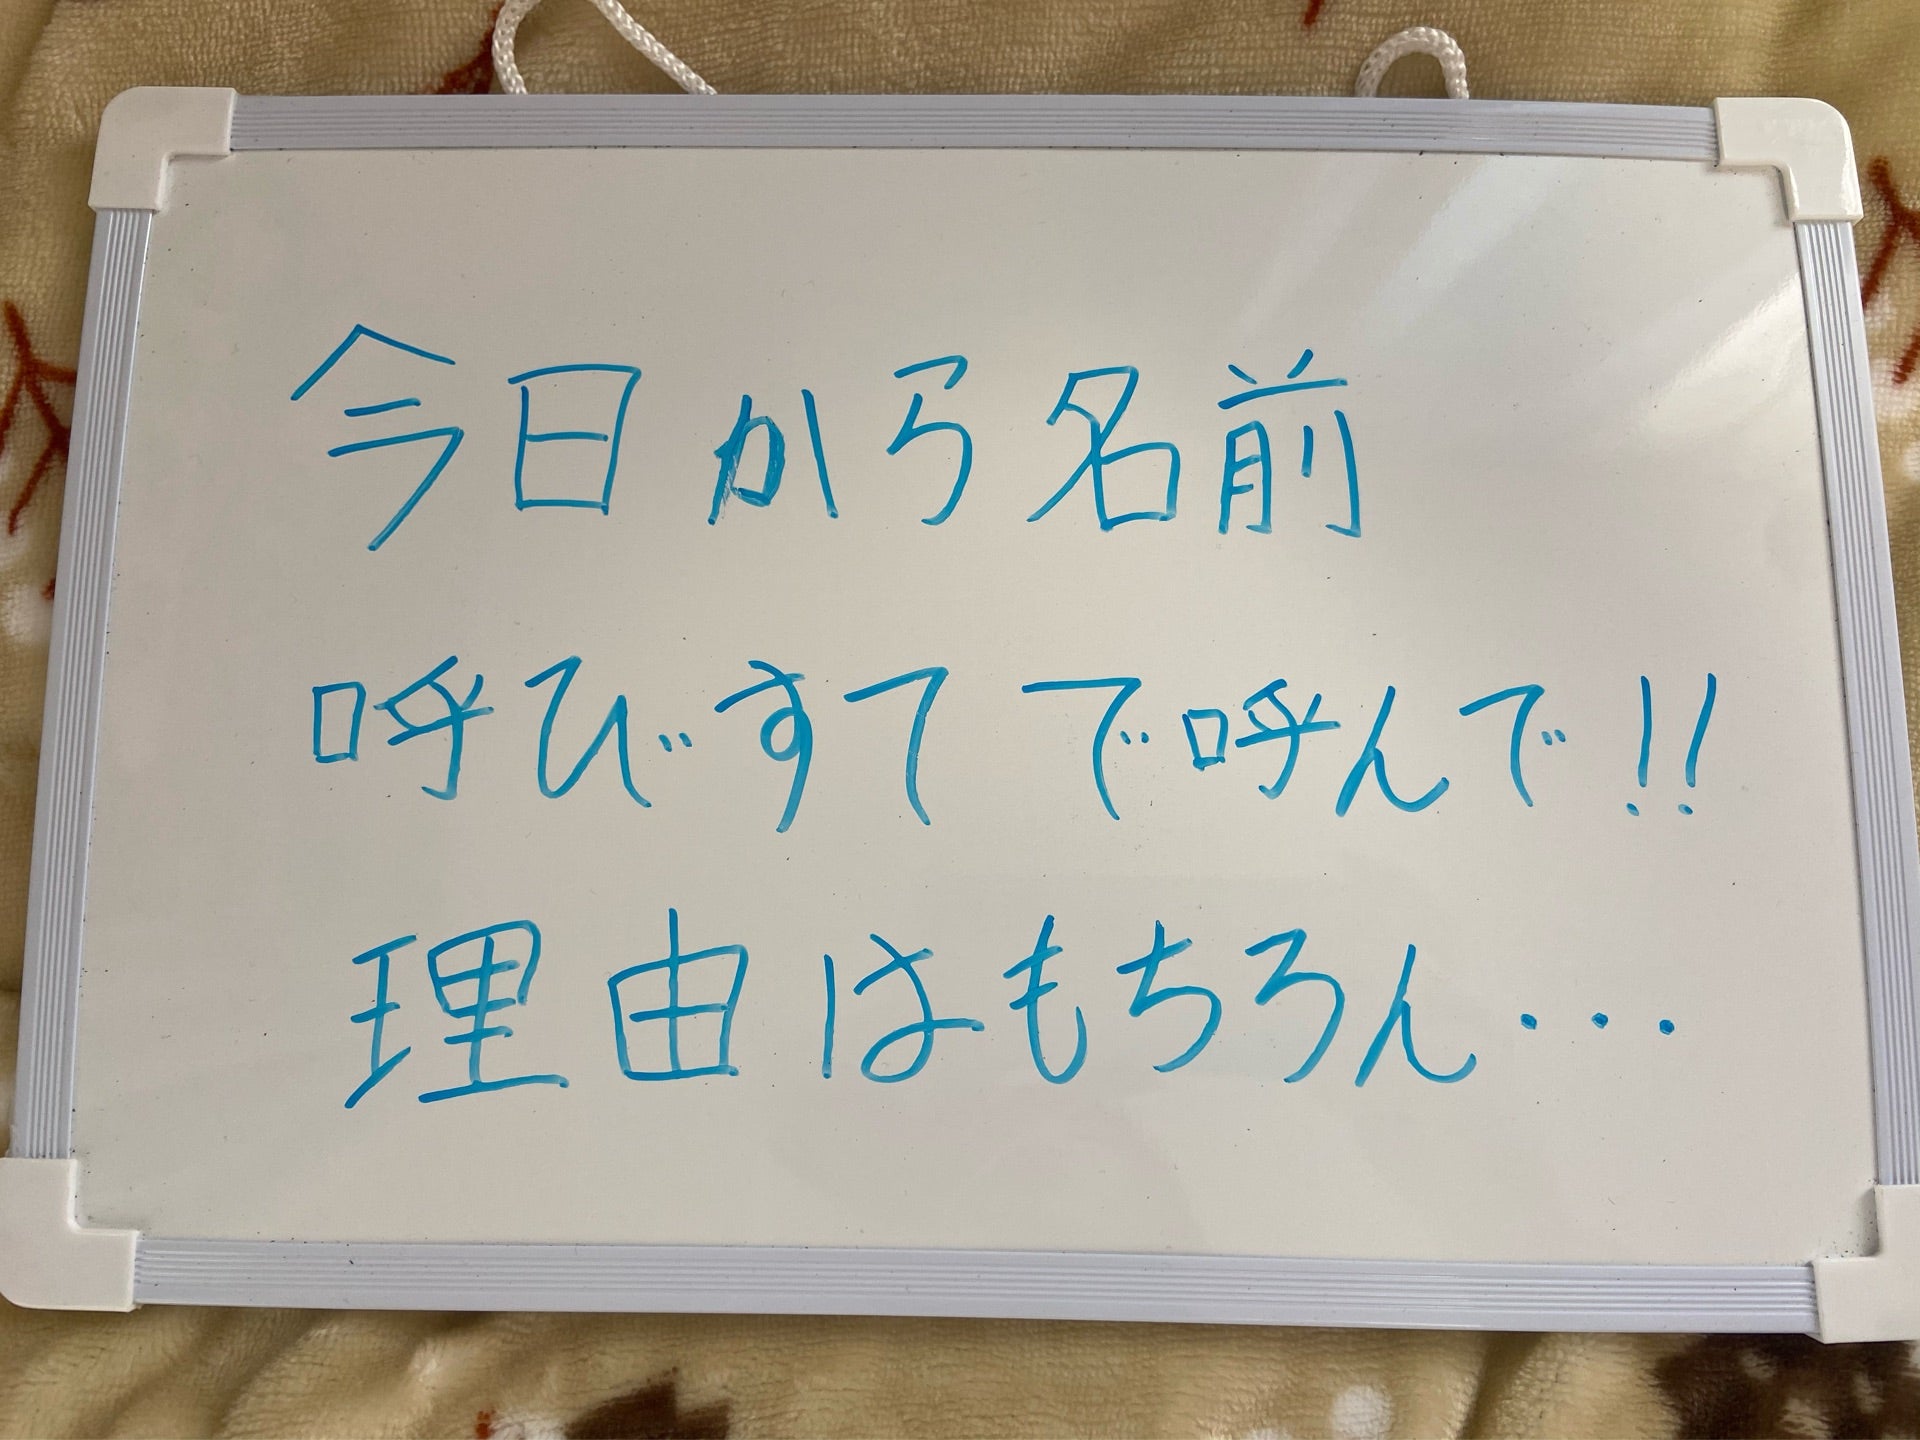 今日から名前
呼びすてで呼んで!!
理由はもちろん...